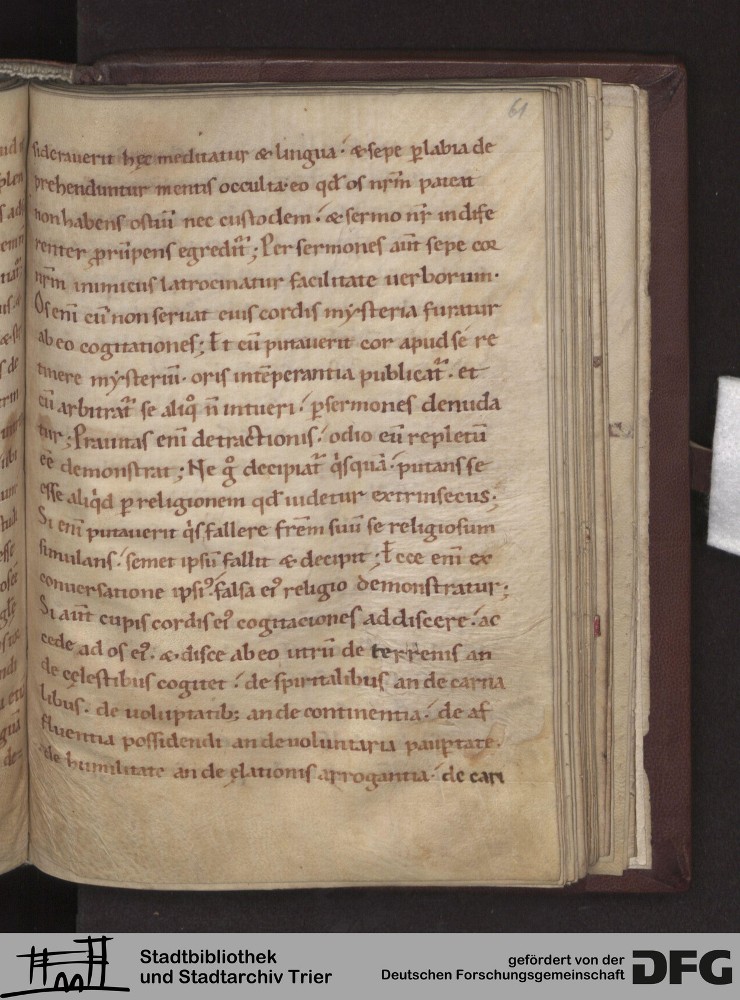 61
siderauerit hęc meditatur & lingua · & sepe p̲ labia de
prehenduntur mentis occulta · eo qđ os nr̅m pateat
non habens ostiū nec custodem · & sermo nr̅ indife
renter prūpens egredit᷑ ; Per sermones aūt sepe cor
nr̅m inimicus latrocinatur facilitate uerborum ·
Os eni̅ cū non seruat eius cordis mysteria furatur
ab eo cogitationes ; Et cū putauerit cor apud se re
tinere mysteriū · oris inte̅perantia publicat᷑ · et
cū arbitrat᷑ se aliq° n̅ intueri · p̲ sermones denuda
tur ; Prauitas eni̅ detractionis · odio eū repletū
eē demonstrat ; Ne g° decipiat᷑ qͥsquā · putans se
esse aliqͥd p̲ religionem qđ uidetur extrinsecus ·
Si eni̅ putauerit qͥs fallere fr̅em suū se religiosum
simulans · semet ipsū fallit & decipit ; Ecce eni̅ ex
conuersatione ipsiꝰ falsa eiꝰ religio demonstratur ;
Si aūt cupis cordis eiꝰ cogitaciones addiscere · ac
cede ad os eiꝰ · & disce ab eo utrū de terrenis an
de cęlestibus cogitet · de spiritalibus an de carna
libus · de uoluptatib; an de continentia · de af
fluentia possidendi an de uoluntaria paup̲tate ·
de humilitate an de elationis arrogantia · de cari
Stadtbibliothek
und Stadtarchiv Trier
gefördert von der
Deutschen Forschungsgemeinschaft
DFG